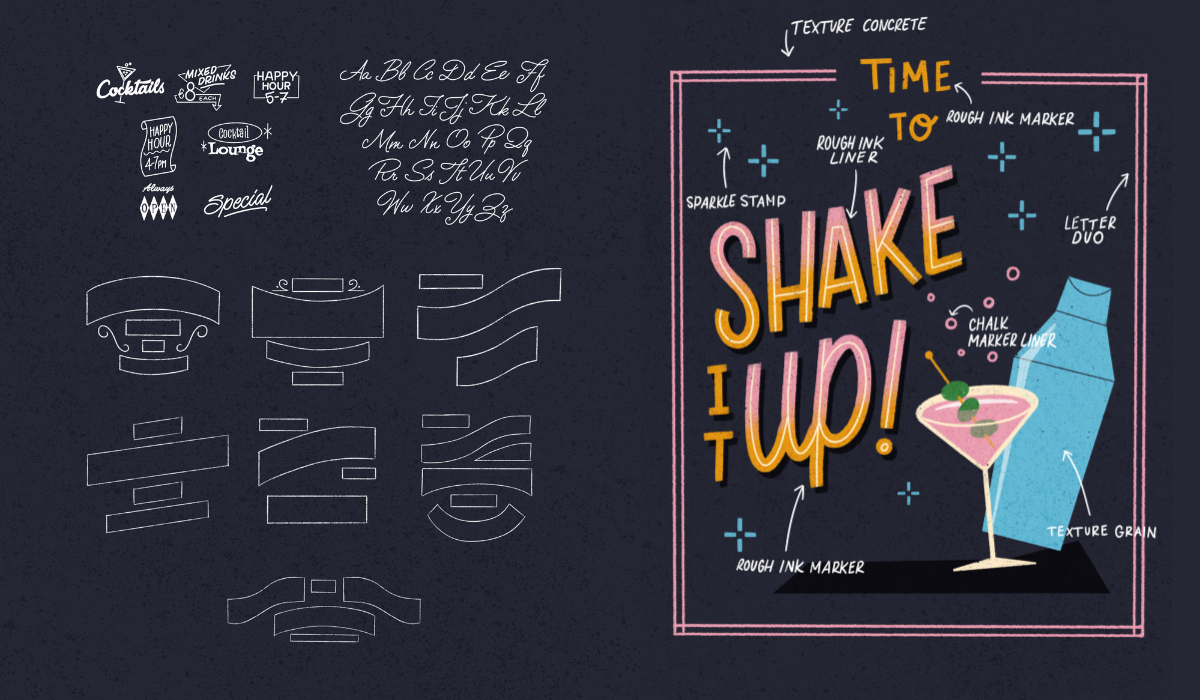 Cocktails
MIXED
DRINKS
$8 EACH
HAPPY
HOUR
5-7
HAPPY
HOUR
4-7PM
Cocktail
Lounge
Always
OPEN
Special
Aa Bb Cc Dd Ee Ff
Gg Hh Ii Jj Kk Ll
Mm Nn Oo Pp Qq
Rr Ss Tt Uu Vv
Ww Xx Yy Zz
TEXTURE CONCRETE
TIME
TO
ROUGH INK MARKER
ROUGH INK
LINER
SPARKLE STAMP
LETTER
DUO
SHAKE
CHALK
MARKER LINER
IT
UP!
TEXTURE GRAIN
ROUGH INK MARKER